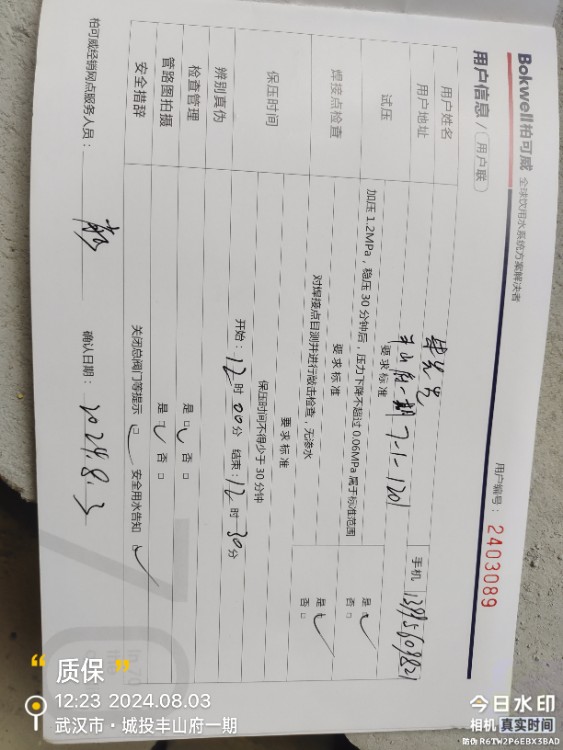 Bokwell柏可威 全球饮用水系统方案解决者
用户信息 / 用户联
用户编号： 2403089
用户姓名
先生
手机
用户地址
丰山府一期7-1-1201
试压
要求标准
加压 1.2MPa，稳压 30 分钟后，压力下降不超过 0.06MPa 属于标准范围
是 否
焊接点检查
要求标准
对焊接点目测并进行敲击检查，无渗水
是 否
保压时间
要求标准
保压时间不得少于 30 分钟
开始：12 时 00 分 结束：12 时 30 分
辨别真伪
检查管理
是 否
管路图拍摄
是 否
安全措辞
关闭总阀门等提示 安全用水告知
柏可威经销网点服务人员：
确认日期： 2024.8.3
“ 质保 ”
12:23 2024.08.03
武汉市·城投丰山府一期
今日水印
相机 真实时间
防伪 R6TW2P6EBX3BAD